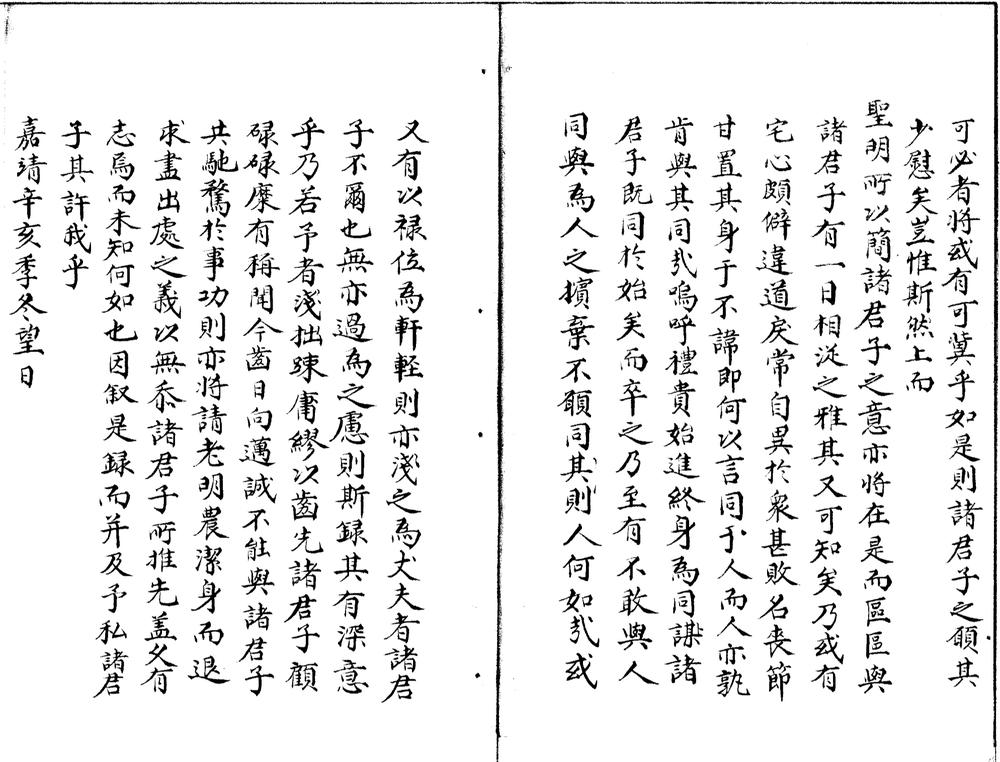 可必者將或有可冀乎如是則諸君子之願其
少慰矣豈惟斯然上而
聖明所以簡諸君子之意亦將在是而區區與
諸君子有一日相從之雅其又可知矣乃或有
宅心頗僻違道戾常自異於衆甚敗名喪節
甘置其身于不諱即何以言同于人而人亦孰
肯與其同㢤嗚呼禮貴始進終身為同謀諸
君子既同於始矣而卒之乃至有不敢與人
同與為人之擯棄不願同其則人何如㢤或
又有以禄位為軒軽則亦淺之為丈夫者諸君
子不爾也無亦過為之慮則斯録其有深意
乎乃若予者淺拙踈庸繆以齒先諸君子顧
碌碌糜有稱聞今齒日向邁誠不能與諸君子
共馳騖於事功則亦將請老明農潔身而退
求盡出處之義以無忝諸君子所推先盖久有
志焉而未知何如也因叙是録而并及予私諸君
子其許我乎
嘉靖辛亥季冬望日